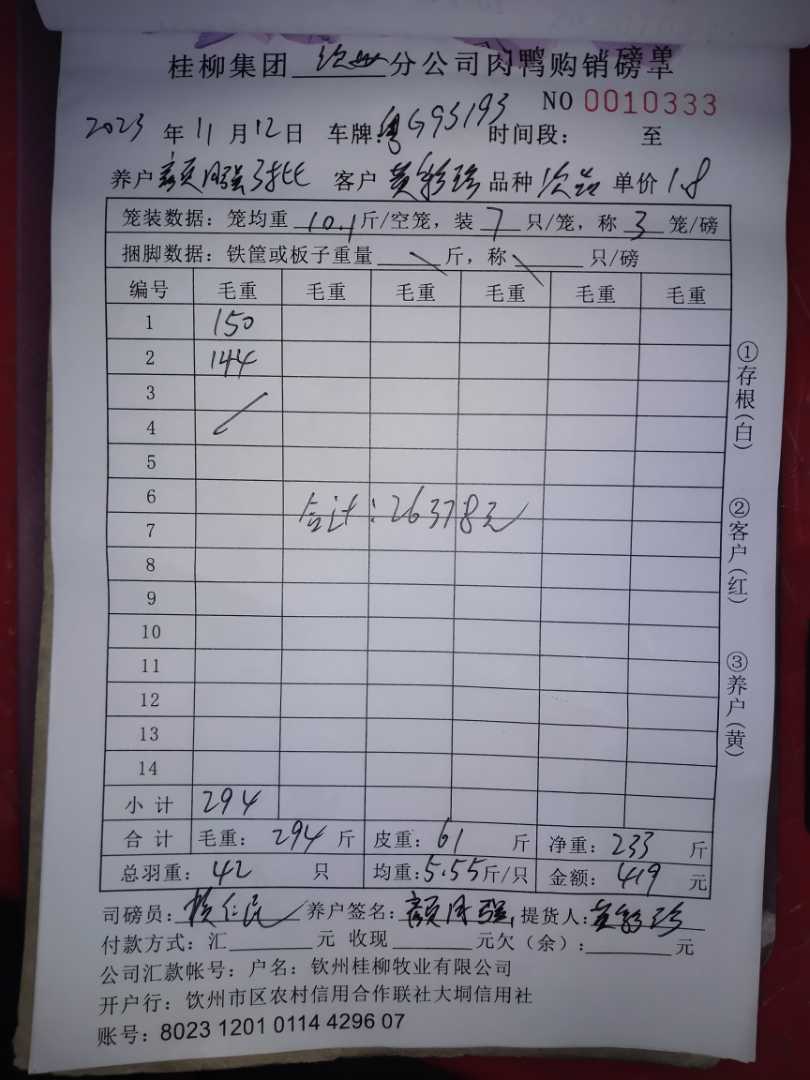 桂柳集团钦州分公司肉鸭购销磅单
NO 0010333
2023年11月12日 车牌:粤G93193 时间段: 至
养户 客户黄彩珍 品种次苗 单价1.8
笼装数据:笼均重10.1斤/空笼,装7只/笼,称3笼/磅
捆脚数据:铁筐或板子重量\斤,称\只/磅
编号 毛重 毛重 毛重 毛重 毛重 毛重
1 150
2 144
3
4
5
6
合计:26378元
7
8
9
10
11
12
13
14
小计 294
合计 毛重:294斤 皮重:61斤 净重:233斤
总羽重:42只 均重:5.55斤/只 金额:419元
司磅员: 养户签名: 提货人:黄彩珍
付款方式:汇 元 收现 元欠(余): 元
公司汇款帐号:户名:钦州桂柳牧业有限公司
开户行:钦州市区农村信用合作联社大垌信用社
账号:8023 1201 0114 4296 07
①存根(白)
②客户(红)
③养户(黄)